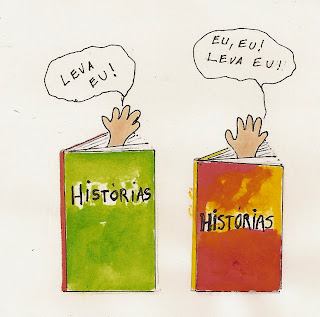 LEVA
EU!
EU, EU!
LEVA EU!
HISTÓRIAS
HISTÓRIAS